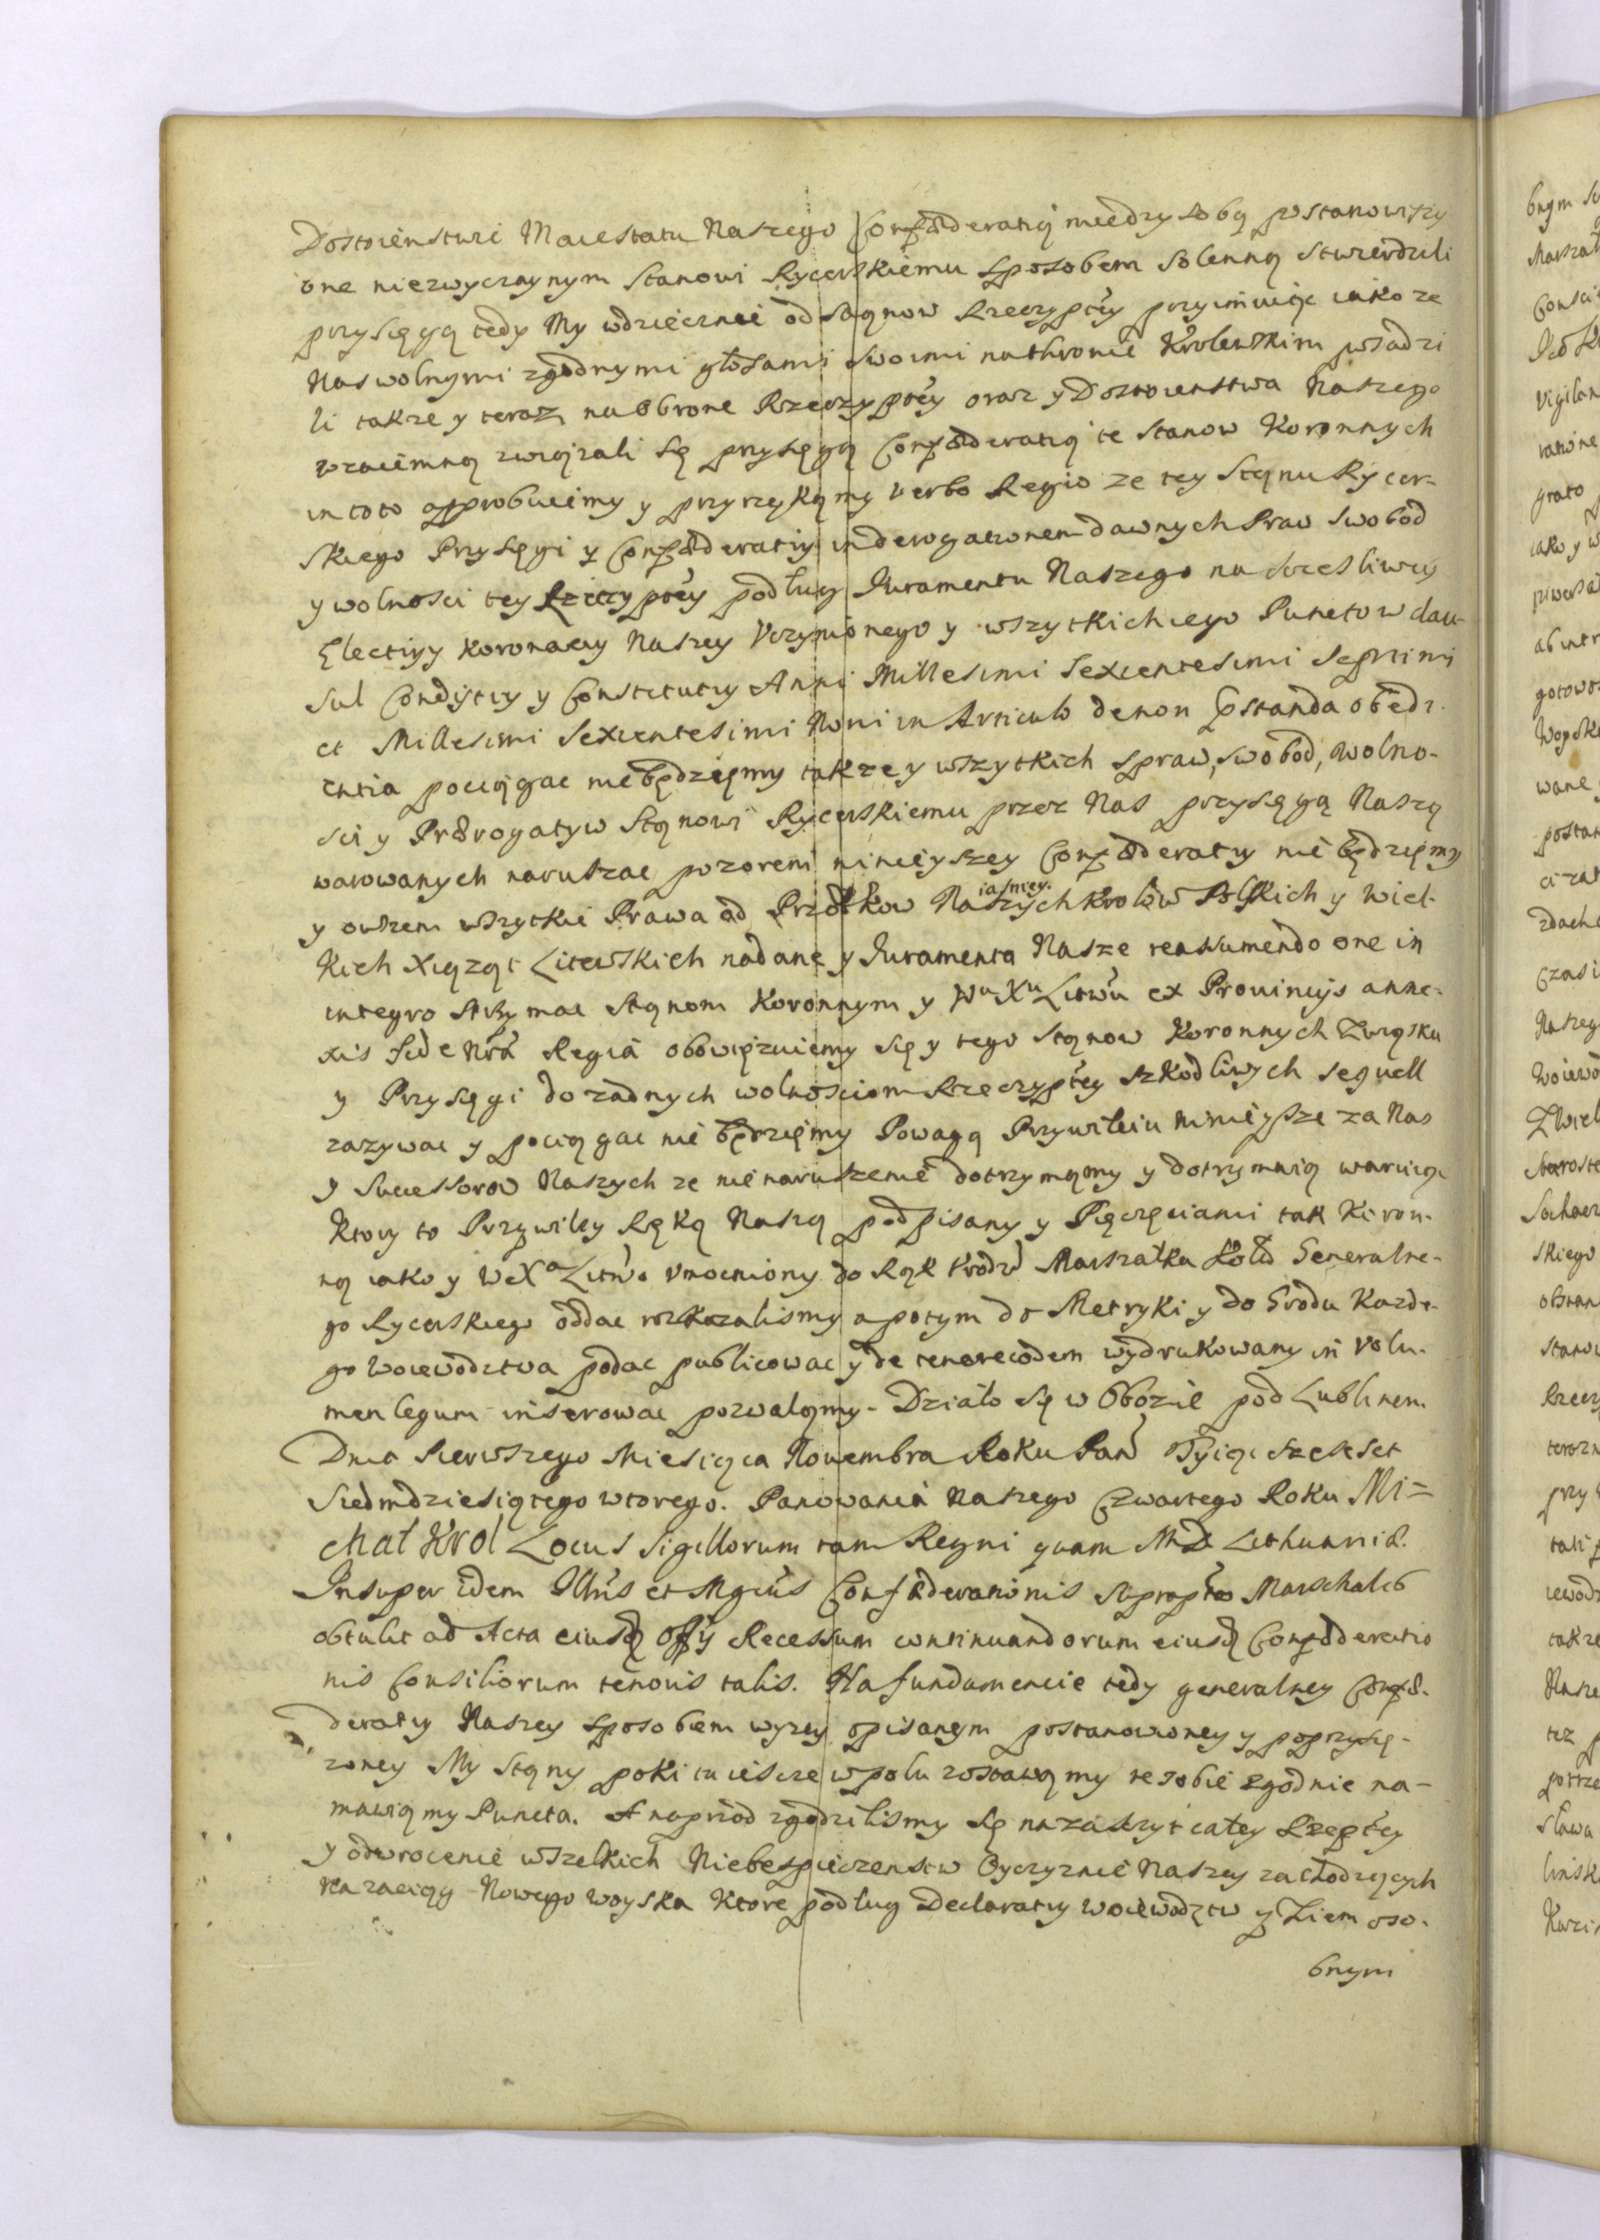 Dostoienstwi Maiestatu Naszego Confæderatią miedzy sobą postanowiszy
one niezwyczaynym Stanowi Rycerskiemu sposobem Solenną stwierdzili
przysięgą tedy My wdziecznie od Stąnow Rzeczyptey przyimuiąc iako ze
Nas wolnymi zgodnymi głosami swoimi na thronie Krolewskim wsadzi
li takze y teraz na obrone Rzeczyptey oraz y Dostoienstwa Naszego
wzaiemną związali się przysięgą Confæderatią te Stanow Koronnych
in toto approbuiemy y przyrzykąmy verbo Regio ze tey Stąnu Rycer-
skiego Przysięgi y Confæderatiy in derogationem dawnych Praw Swobod
y wolnosci tey Rzeczyptey podług Juramentu Naszego na szczesliwey
Electiyy Koronacyy Naszey Vczynionego y wszytkich iego Punctow clau-
sul Conditiy y Constitutiy Anni Millesimi Sexcentesimi Septimi
et Millesimi Sexcentesimi Noni in Articulo de non præstanda obedi-
entia pociągac nie będziemy takze y wszytkich spraw, swobod, wolno-
sci y Prærogatyw Stąnowi Rycerskiemu przez Nas przysięgą Naszą
warowanych naruszac pozorem ninieyszey Confæderatiy nie będziemy
y owszem wszytkie Prawa od Przodkow Naszych iasniey. Krolow Polskich y Wiel-
kich Xiąząt Litewskich nadane y Juramenta Nasze reassumendo one in
integro strzymac Stąnom Koronnym y Wu Xu Littwu ex Prouincijs anne-
xis fide Nrã Regiâ obowiązuiemy się y tego Stąnow Koronnych Związku
y Przysięgi do zadnych wolnosciom Rzeczyptey szkodliwych sequell
zazywac y pociągac nie będziemy Powagą Przywileiu ninieysze za Nas
y Successorow Naszych ze nie naruszenie dotrzymąmy y dotrzymaią waruiąc
Ktory to Przywiley Ręką Naszą podpisany y Pięczęciami tak Koron-
ną iako y WoXa Littwo vmocniony do Rąk Vrodz Marszałka Koła Generalne-
go Rycerskiego oddac rozkazalismy a potym do Metryki y do Grodu Kazde-
go Woiewodztwa podac publicowac y de tenore eodem wydrukowany in Volu-
men legum inserowac pozwaląmy. Działo się w Obozie pod Lublinem
Dnia Pierwszego Miesiąca Nouembra Roku Pan Tysiąc Szescset
Siedmdziesiątego wtorego. Panowania Naszego Czwartego Roku Mi=
chał Krol Locus Sigillorum tam Regni quam M D Lithuaniæ.
Insuper idem Illris et Mgcus Confæderationis suprapto Marschalco
obtulit ad Acta eiusdq offij Recessum continuandorum eiusdq Confæderatio
nis Consiliorum tenoris talis. Na fundamencie tedy generalney Confæ-
deratiy Naszey sposobem wyzey opisanym postanowioney y poprzysię-
zoney My Stąny poki tu iescze w polu zostawąmy te sobie zgodnie na-
mawiąmy Puncta. A naprzod zgodzilismy się na zaszczyt całey Rzeptey
y odwrocenie wszelkich Niebespieczenstw Oyczyznie Naszey zachodzących
na zaciąg Nowego woyska Ktore podług Declaratiy woiewodztw y Ziem oso-
bnym